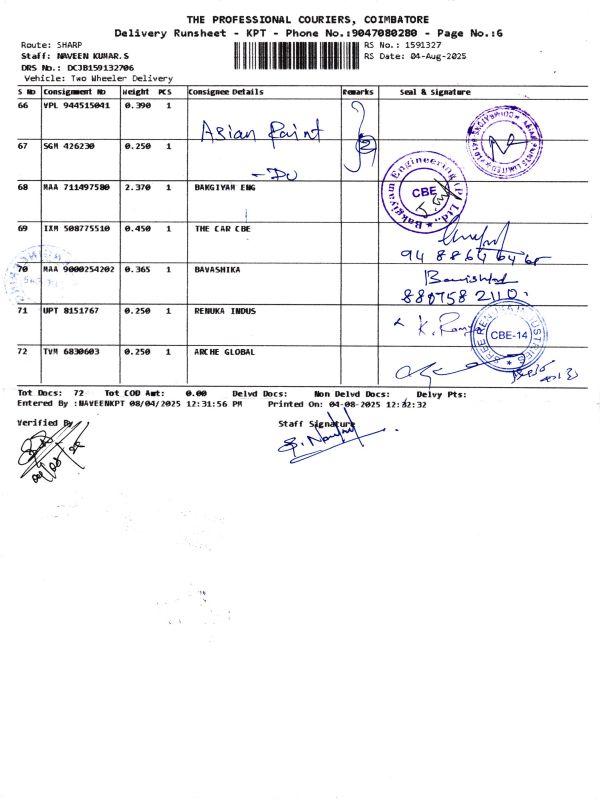 THE PROFESSIONAL COURIERS, COIMBATORE
Delivery Runsheet - KPT - Phone No.:9047080280 - Page No.:6
Route: SHARP
RS No.: 1591327
Staff: NAVEEN KUMAR.S
RS Date: 04-Aug-2025
DRS No.: DCJB159132706
Vehicle: Two Wheeler Delivery
S No Consignment No Weight PCS Consignee Details Remarks Seal & Signature
66 VPL 944515041 0.390 1 Asian Paint
67 SGM 426230 0.250 1 - Do
68 MAA 711497580 2.370 1 BAKGIYAM ENG
Bakgiyam Engineering (P) Ltd.,
CBE
69 IXM 508775510 0.450 1 THE CAR CBE
70 MAA 9000254202 0.365 1 BAVASHIKA
71 UPT 8151767 0.250 1 RENUKA INDUS
K.
CBE-14
72 TVM 6830603 0.250 1 ARCHE GLOBAL
Tot Docs: 72 Tot COD Amt: 0.00 Delvd Docs: Non Delvd Docs: Delvy Pts:
Entered By :NAVEENKPT 08/04/2025 12:31:56 PM Printed On: 04-08-2025 12:32:32
Verified By
Staff Signature